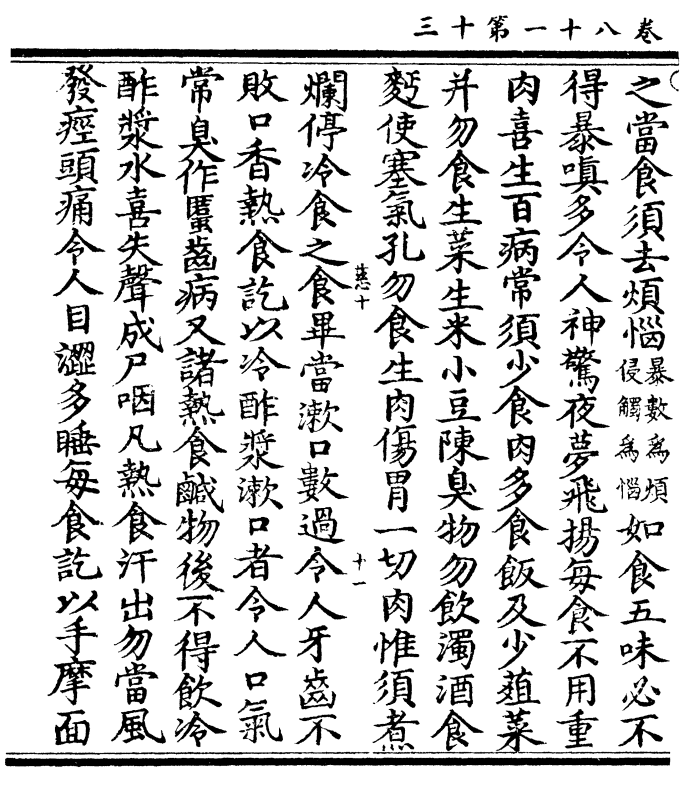 卷八十一第十三
之當食須去煩惱暴數為煩侵觸為惱如食五味必不
得暴嗔多令人神驚夜夢飛揚每食不用重
肉喜生百病常須少食肉多食飯及少葅菜
并勿食生菜生米小豆陳臭物勿飲濁酒食
麪使塞氣孔勿食生肉傷胃一切肉惟須煮
爛停冷食之食畢當漱口數過令人牙齒不
慈十
十一
敗口香熱食訖以冷酢漿漱口者令人口氣
常臭作䘌齒病又諸熱食鹹物後不得飲冷
酢漿水喜失聲成尸咽凡熱食汗出勿當風
發痙頭痛令人目澀多睡每食訖以手摩面